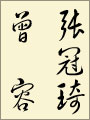 張冠琦
曾容